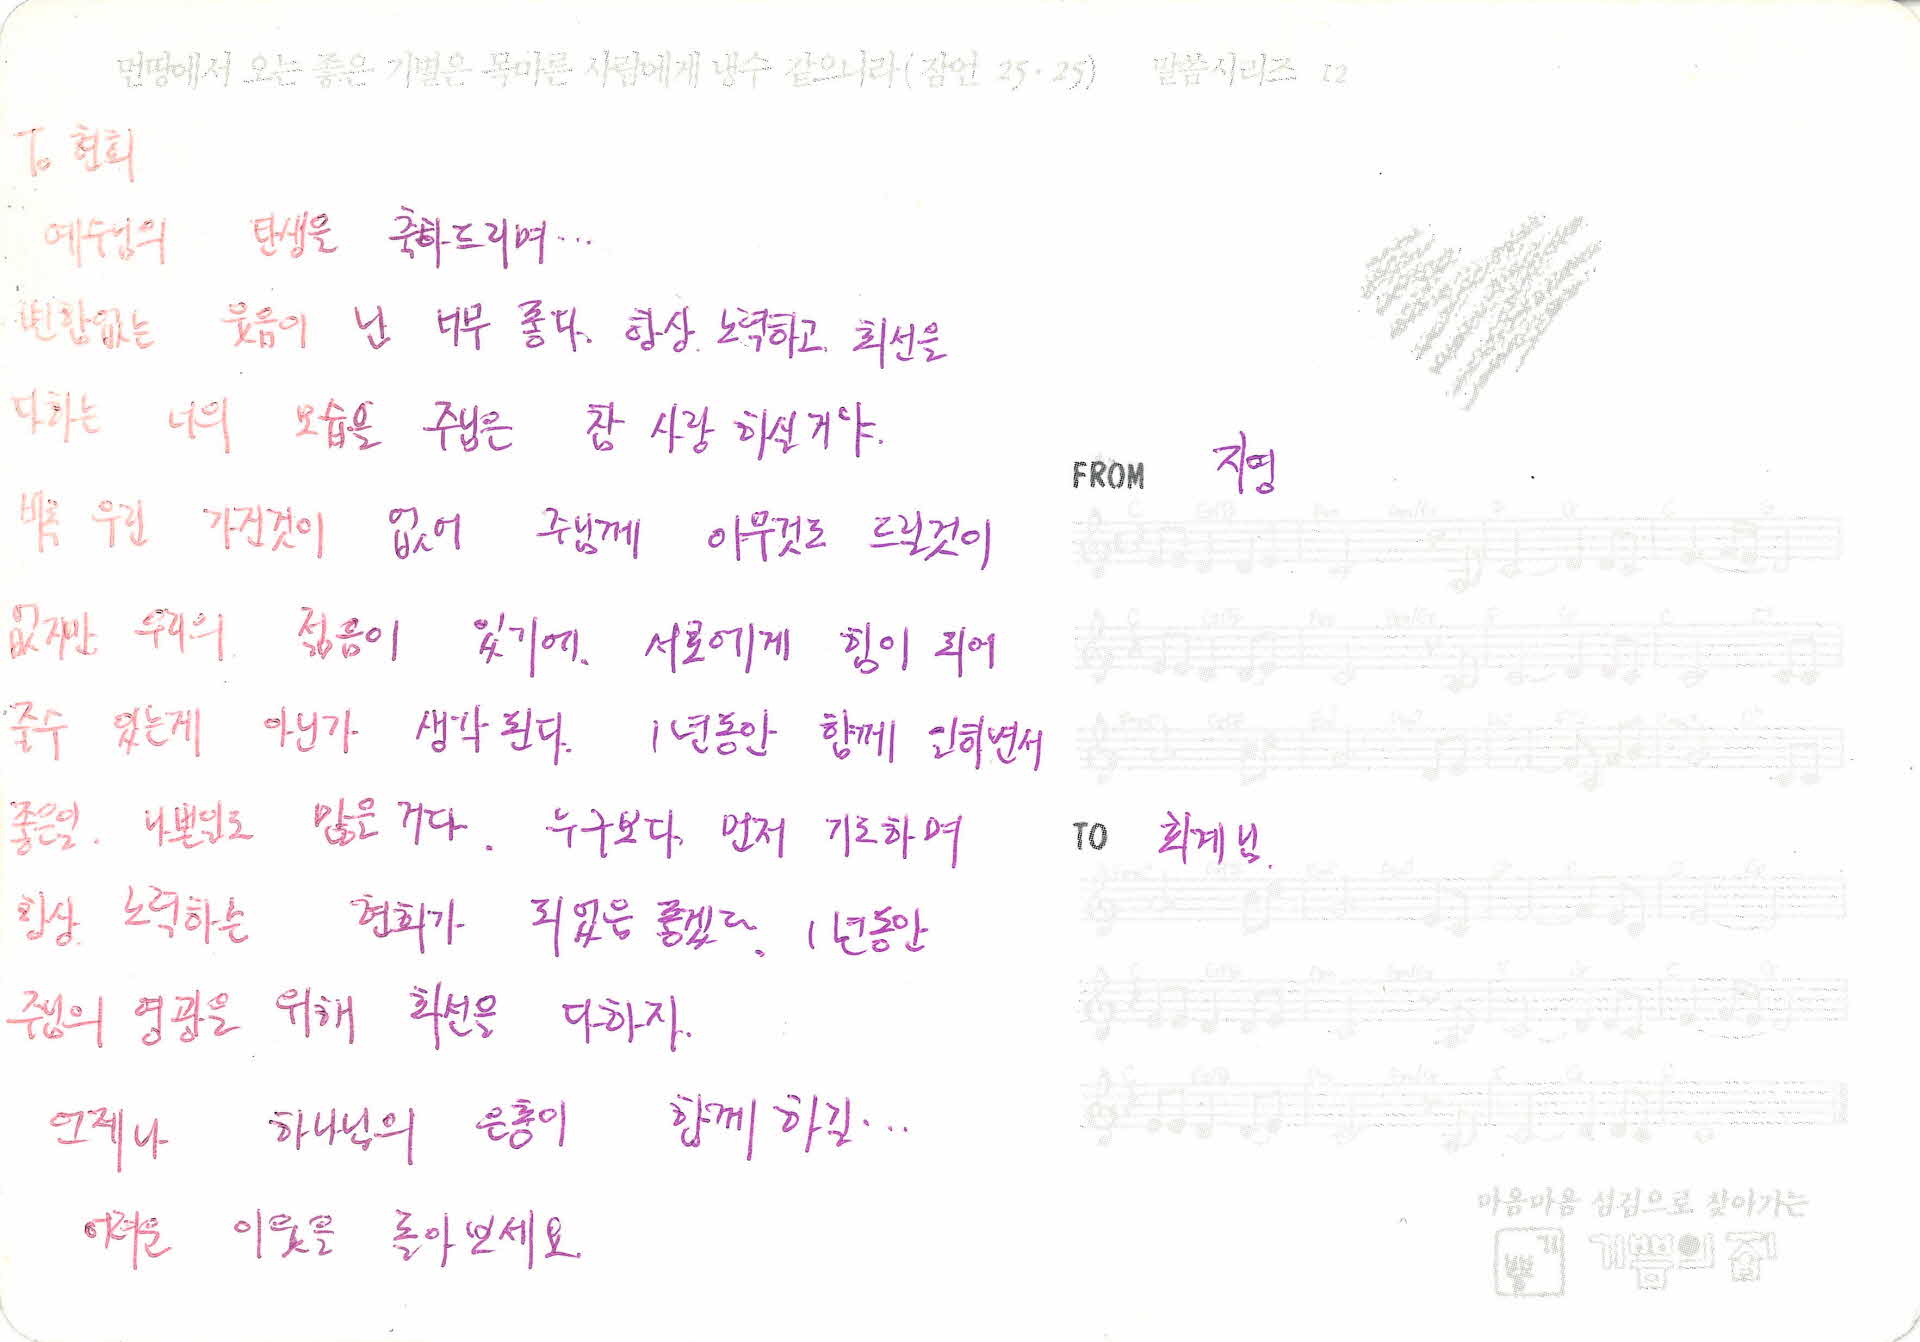 먼땅에서 오는 좋은 기별은 목마른 사람에게 냉수 같으니라(잠언 25·25) 말씀시리즈 12
To 현희
예수님의 탄생을 축하드리며...
변함없는 웃음이 난 너무 좋다. 항상 노력하고 최선을
다하는 너의 모습을 주님은 참 사랑 하실거야.
비록 우린 가진것이 없어 주님께 아무것도 드릴것이
없지만 우리의 젊음이 있기에. 서로에게 힘이 되어
줄수 있는게 아닌가 생각된다. 1년동안 함께 일하면서
좋은일. 나쁜일도 많은거다. 누구보다. 먼저 기도하며
항상 노력하는 현희가 되었음 좋겠다. 1년동안
주님의 영광을 위해 최선을 다하자.
언제나 하나님의 은총이 함께 하길...
어려운 이웃을 돌아보세요
FROM 지영
TO 회계님.
마음마음 섬김으로 찾아가는
기쁨의 집